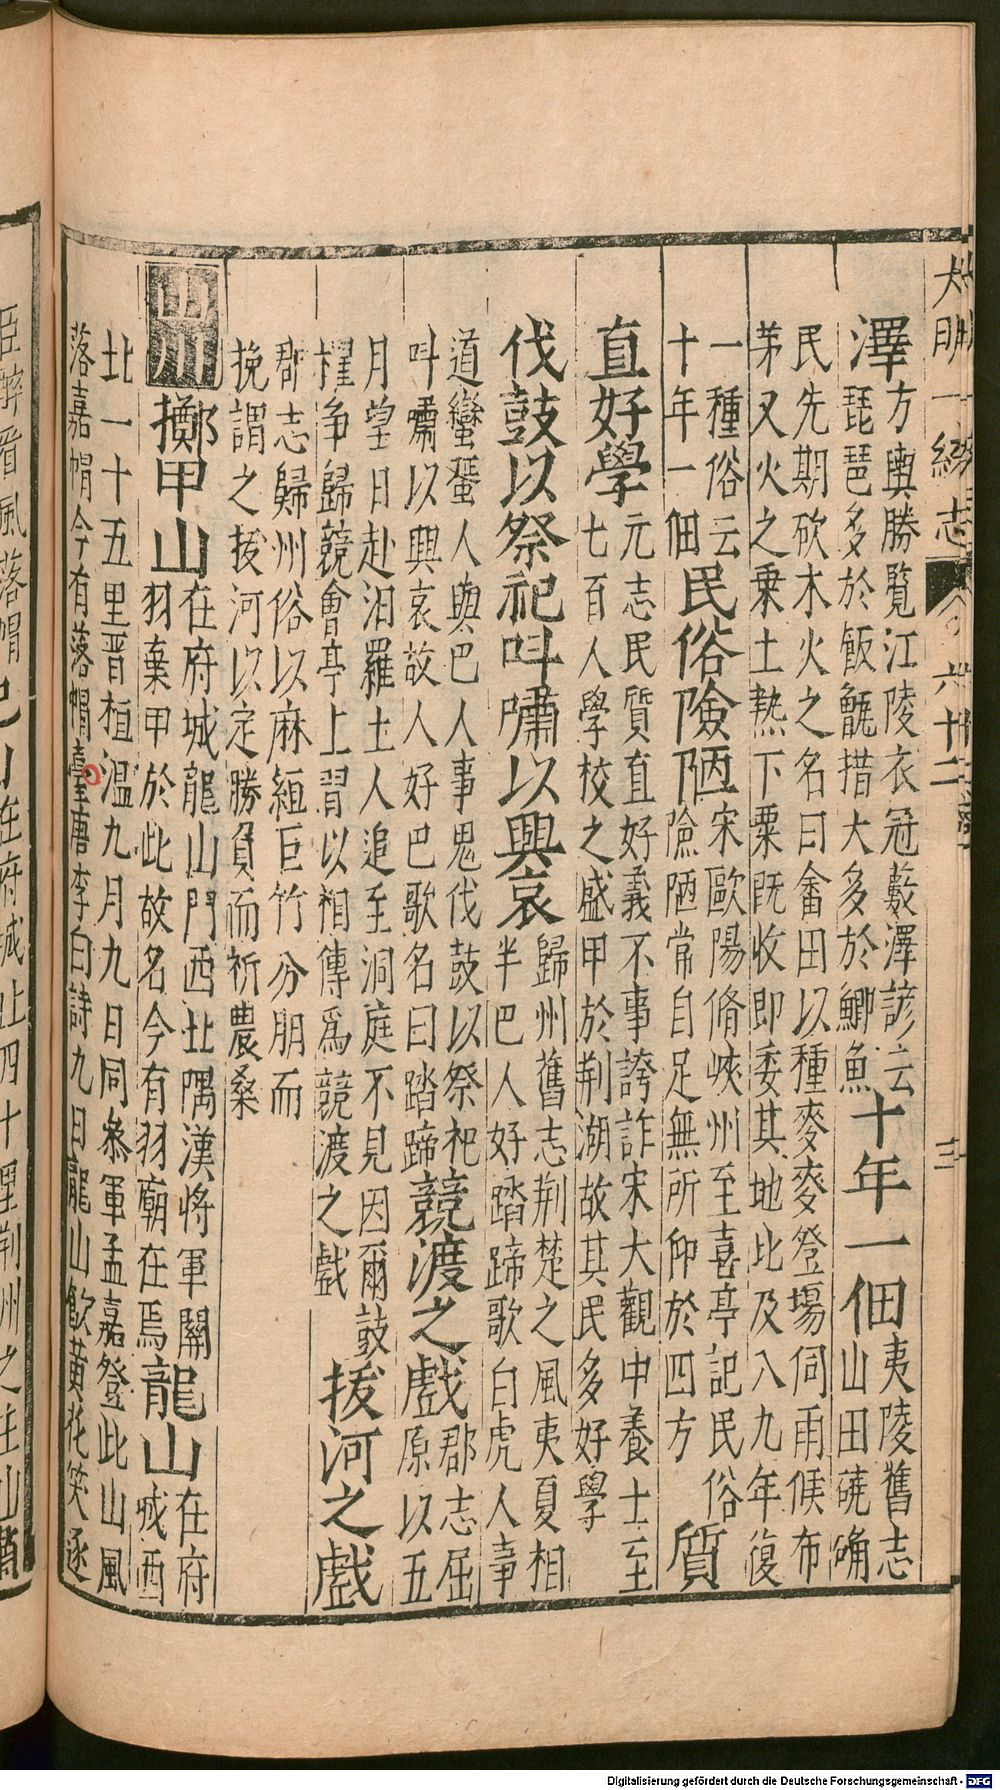 大明一統志 卷六十二 三
澤
方輿勝覽江陵衣冠藪澤諺云
琵琶多於飯甑措大多於鯽魚
十年一佃
夷陵舊志
山田磽确
民先期砍木火之名曰畬田以種麥麥登場伺雨候布
苐又火之乗土熱下粟既收即委其地比及入九年復
一種俗云
十年一佃
民俗險陋
宋歐陽脩峽州至喜亭記民俗
險陋常自足無所仰於四方
質
直好學
元志民質直好義不事誇詐宋大觀中養士至
七百人學校之盛甲於荆湖故其民多好學
伐鼓以祭祀叫嘯以興哀
歸州舊志荆楚之風夷夏相
半巴人好踏蹄歌白虎人事
道蠻蜑人與巴人事鬼伐鼓以祭祀
叫嘯以興哀故人好巴歌名曰踏蹄
競渡之戲
郡志屈
原以五
月望日赴汨羅土人追至洞庭不見因爾鼓
櫂争歸競會亭上習以相傳爲競渡之戲
拔河之戲
郡志歸州俗以麻絙巨竹分朋而
挽謂之拔河以定勝負而祈農桑
山川
擲甲山
在府城龍山門西北隅漢將軍關
羽棄甲於此故名今有羽廟在焉
龍山
在府
城西
北一十五里晋桓温九月九日同叅軍孟嘉登此山風
落嘉帽今有落帽臺唐李白詩九日龍山飲黄花笑逐
臣醉看風落帽
山在府城北四十里荆州之主山
Digitalisierung gefördert durch die Deutsche Forschungsgemeinschaft - DFG